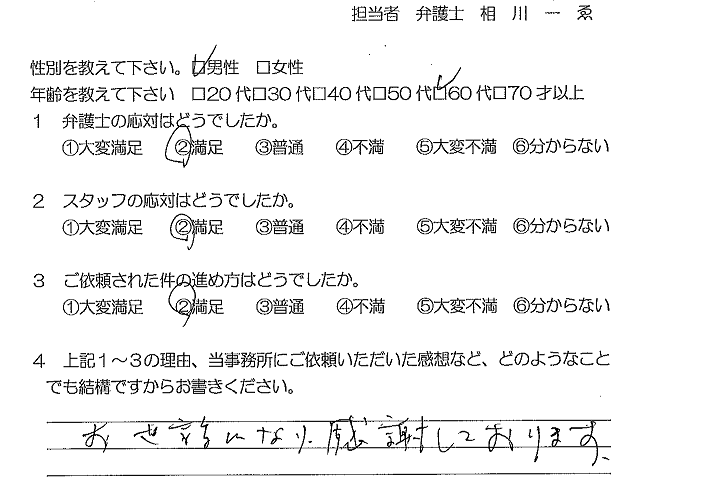 担当者 弁護士 相 川 一 ゑ
性別を教えて下さい。 ☑男性 □女性
年齢を教えて下さい □20代□30代□40代□50代☑60代□70才以上
1 弁護士の応対はどうでしたか。
①大変満足 ②満足 ③普通 ④不満 ⑤大変不満 ⑥分からない
2 スタッフの応対はどうでしたか。
①大変満足 ②満足 ③普通 ④不満 ⑤大変不満 ⑥分からない
3 ご依頼された件の進め方はどうでしたか。
①大変満足 ②満足 ③普通 ④不満 ⑤大変不満 ⑥分からない
4 上記1～3の理由、当事務所にご依頼いただいた感想など、どのようなこと
でも結構ですからお書きください。
お世話になり、感謝しております。